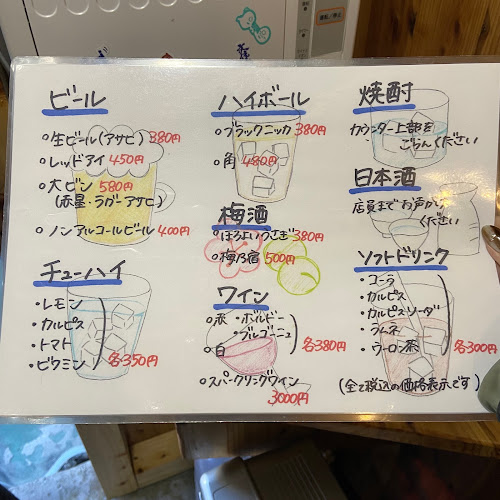 ビール
○生ビール(アサヒ) 380円
○レッドアイ 450円
○大ビン 580円
(赤星・ラガー・アサヒ)
○ノンアルコールビール 400円
チューハイ
・レモン
・カルピス
・トマト
・ビタミン
各350円
ハイボール
○ブラックニッカ 380円
○角 480円
梅酒
○ほろよいうさぎ 380円
○梅乃宿 500円
ワイン
○赤・ボルドー
・ブルゴーニュ
○白
各380円
○スパークリングワイン
3000円
焼酎
カウンター上部を
ごらんください
日本酒
店員までお声がけ
ください
ソフトドリンク
・コーラ
・カルピス
・カルピスソーダ
・ラムネ
・ウーロン茶
各300円
(全て税込の価格表示です)